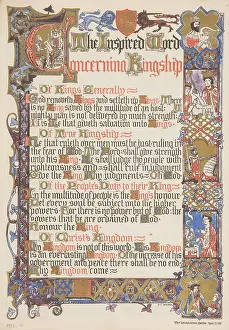 The Inspired Word
Concerning Kingship
Of Kings Generally
God removeth Kings and setteth up Kings. There
is no King saved by the multitude of an host: A
mighty man is not delivered by much strength:
It is He that giveth salvation unto Kings.
Of True Kingship
He that ruleth over men must be just: ruling in
the fear of God. The Lord shall give strength
unto his King. He shall judge thy people with
righteousness and shall rule in judgment
Give the King thy judgments O God
Of the People's Duty to their King
In the multitude of people is the King's honour
Let every soul be subject unto the higher
powers. For there is no power but of God: the
powers that be are ordained of God.
Honour the King
Of Christ's Kingdom
My Kingdom is not of this world. His Kingdom
is an everlasting Kingdom. Of the increase of his
government and peace there shall be no end
Thy Kingdom come